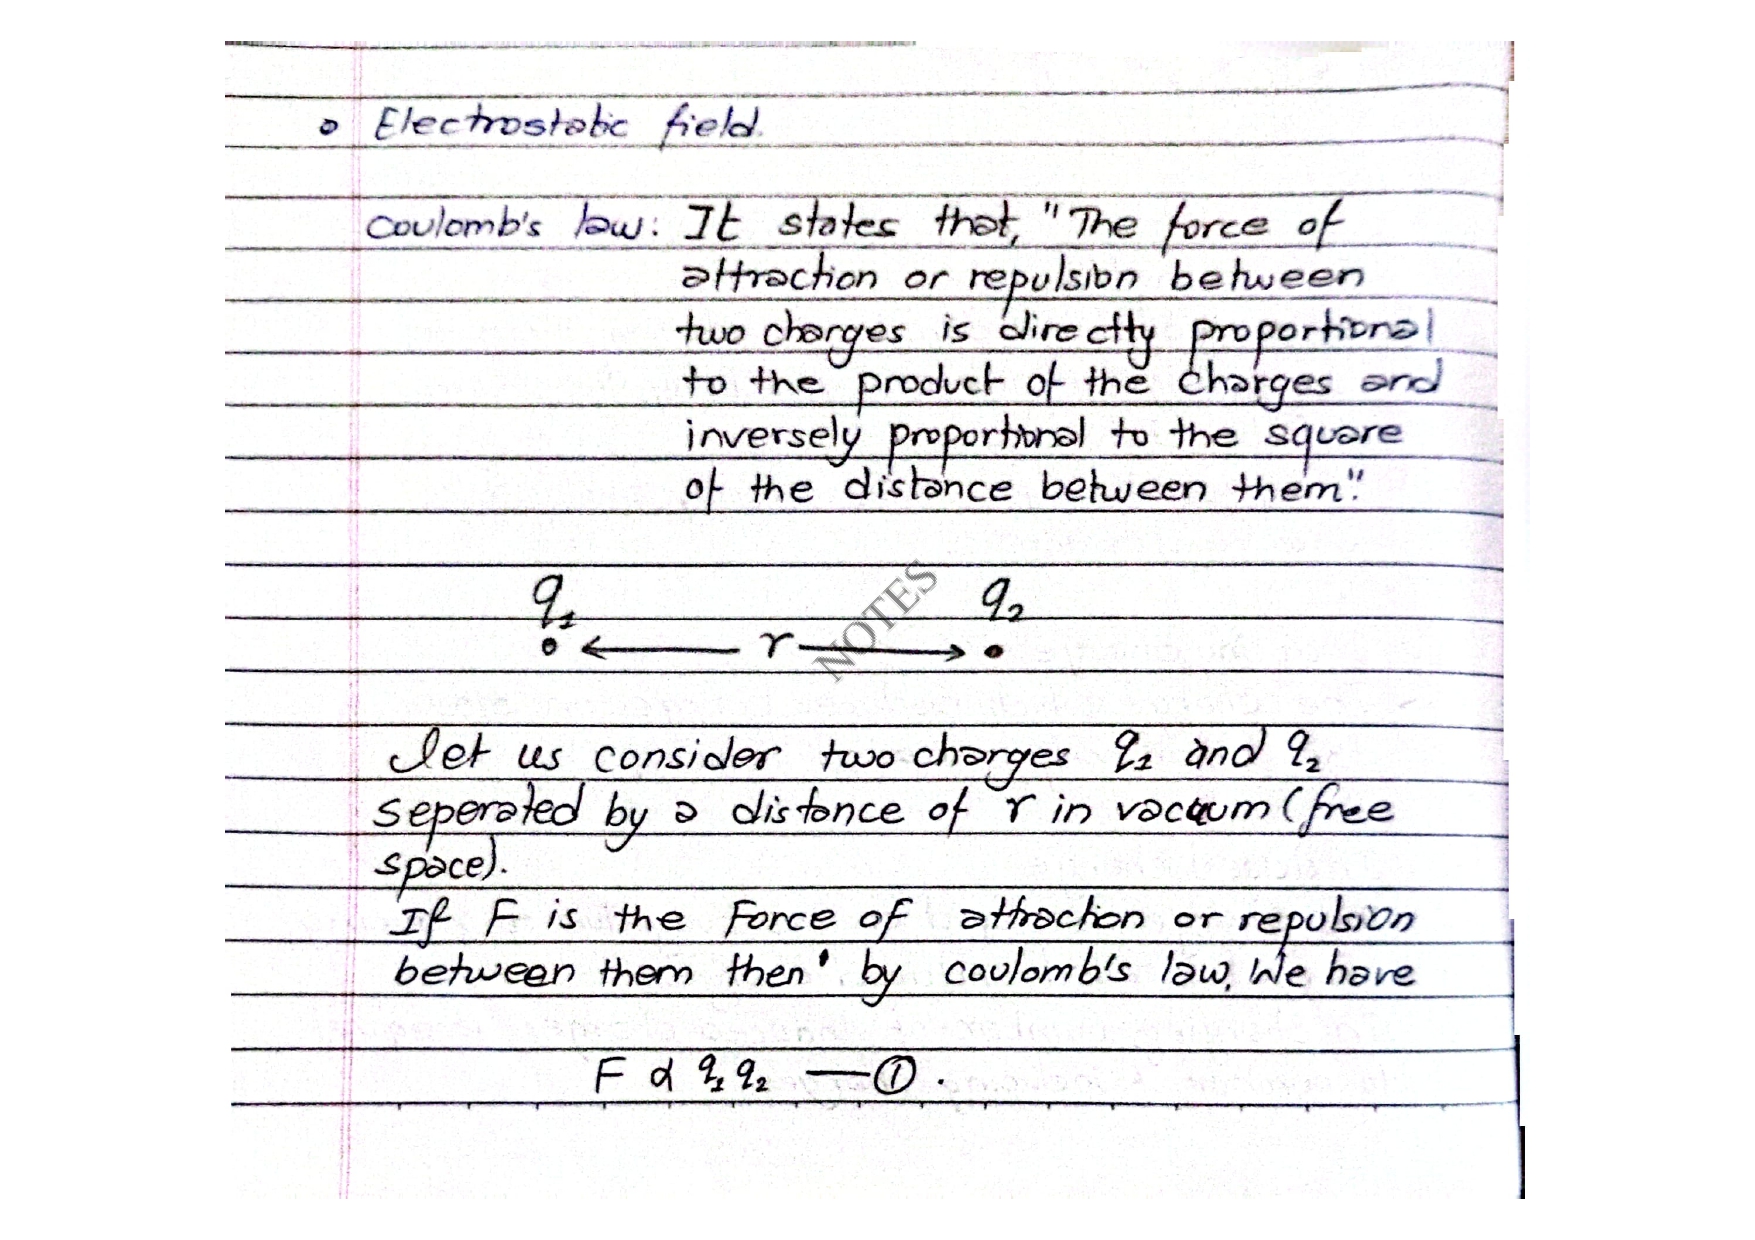 Electrostatic field.
Coulomb's law: It states that, "The force of
attraction or repulsion between
two charges is directly proportional
to the product of the charges and
inversely proportional to the square
of the distance between them".
q₁ q₂
r
NOTES
let us consider two charges q₁ and q₂
seperated by a distance of r in vacuum (free
space).
If F is the Force of attraction or repulsion
between them then' by coulomb's law, We have
F α q₁ q₂ — ①.